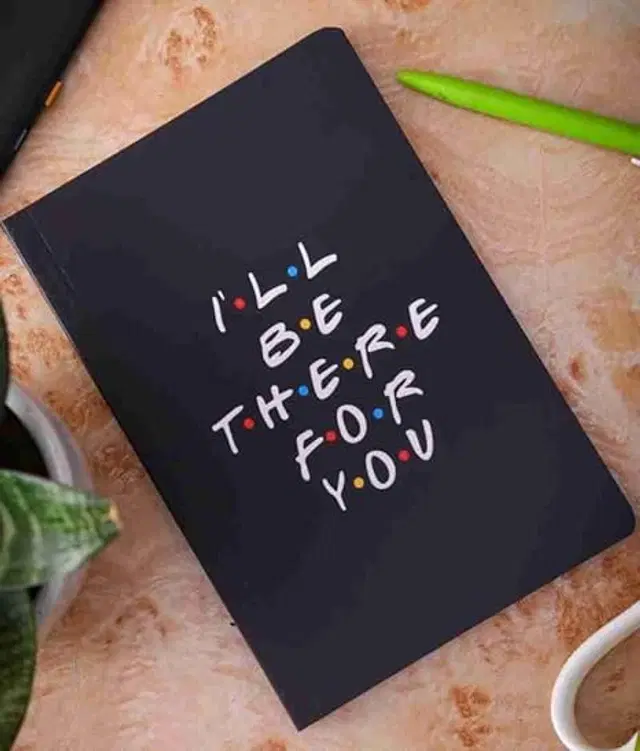 I'LL
BE
THERE
FOR
YOU